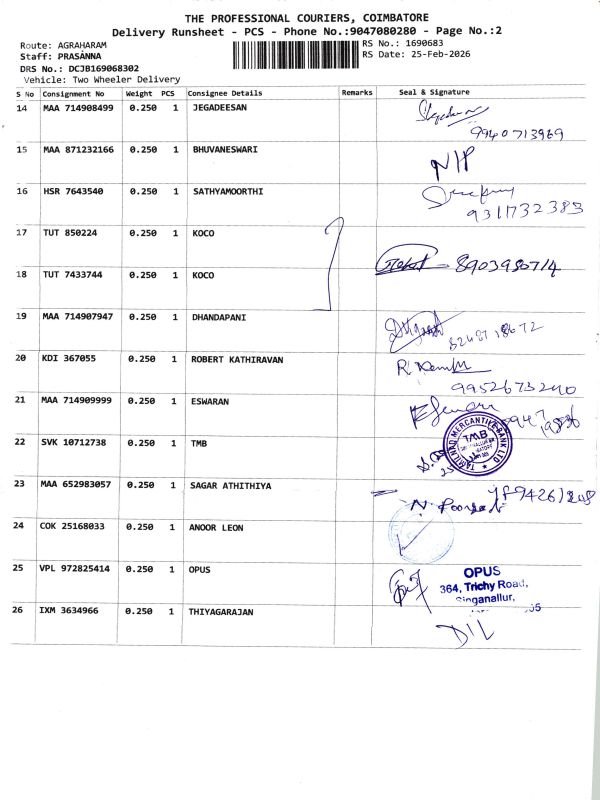 THE PROFESSIONAL COURIERS, COIMBATORE
Delivery Runsheet - PCS - Phone No.:9047080280 - Page No.:2
Route: AGRAHARAM
Staff: PRASANNA
DRS No.: DCJB169068302
Vehicle: Two Wheeler Delivery
RS No.: 1690683
RS Date: 25-Feb-2026
S No Consignment No Weight PCS Consignee Details Remarks Seal & Signature
14 MAA 714908499 0.250 1 JEGADEESAN
9940713969
15 MAA 871232166 0.250 1 BHUVANESWARI
16 HSR 7643540 0.250 1 SATHYAMOORTHI
9311732383
17 TUT 850224 0.250 1 KOCO
18 TUT 7433744 0.250 1 KOCO
8903980714
19 MAA 714907947 0.250 1 DHANDAPANI
20 KDI 367055 0.250 1 ROBERT KATHIRAVAN
9952673240
21 MAA 714909999 0.250 1 ESWARAN
22 SVK 10712738 0.250 1 TMB
TAMILNAD MERCANTILE BANK LTD
TMB
23 MAA 652983057 0.250 1 SAGAR ATHITHIYA
24 COK 25168033 0.250 1 ANOOR LEON
25 VPL 972825414 0.250 1 OPUS
OPUS
364, Trichy Road,
Singanallur,
26 IXM 3634966 0.250 1 THIYAGARAJAN
D/L